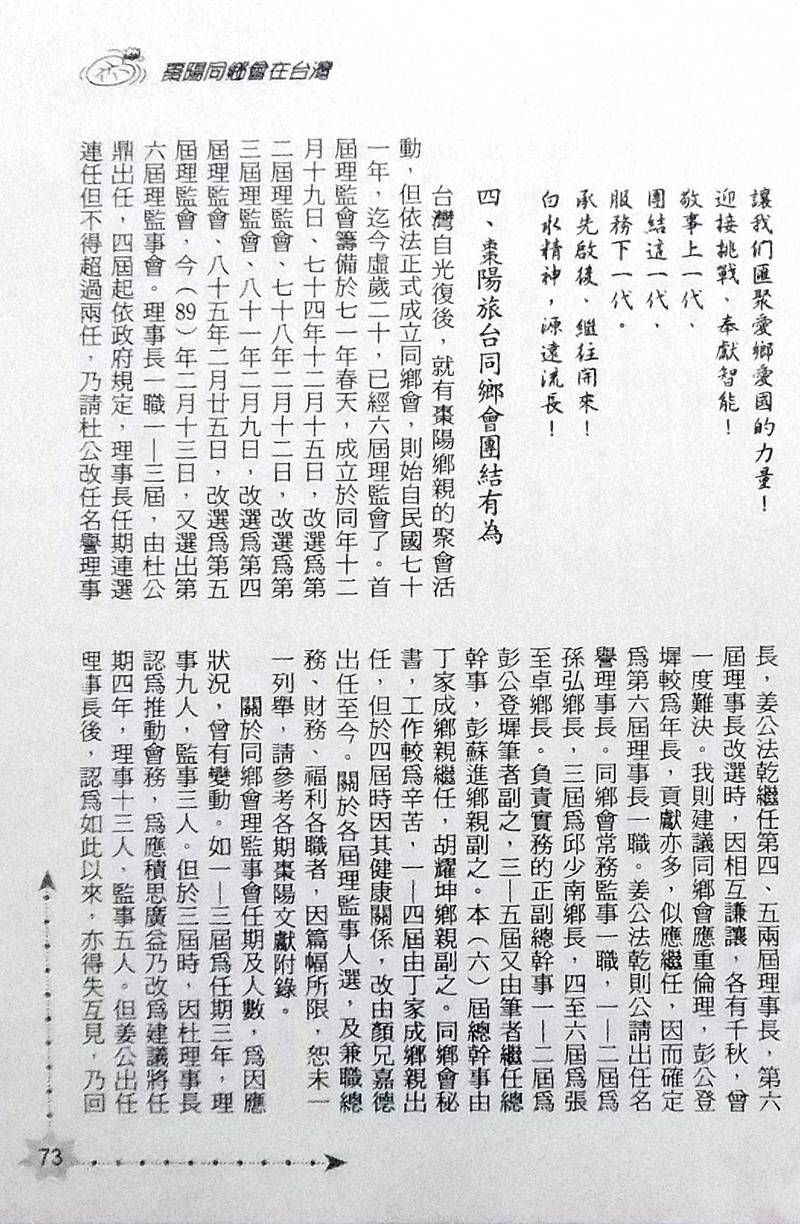 棗陽同鄉會在台灣
讓我们匯聚愛鄉愛國的力量！
迎接挑戰、奉獻智能！
敬事上一代、
團結這一代、
服務下一代。
承先啟後、繼往開來！
白水精神，源遠流長！
四、棗陽旅台同鄉會團結有為
台灣自光復後，就有棗陽鄉親的聚會活
動，但依法正式成立同鄉會，則始自民國七十
一年，迄今虛歲二十，已經六屆理監會了。首
屆理監會籌備於七一年春天，成立於同年十二
月十九日、七十四年十二月十五日，改選為第
二屆理監會、七十八年二月十二日，改選為第
三屆理監會、八十一年二月九日，改選為第四
屆理監會、八十五年二月廿五日，改選為第五
屆理監會，今（89）年二月十三日，又選出第
六屆理監事會。理事長一職一—三屆，由杜公
鼎出任，四屆起依政府規定，理事長任期連選
連任但不得超過兩任，乃請杜公改任名譽理事
長，姜公法乾繼任第四、五兩屆理事長，第六
屆理事長改選時，因相互謙讓，各有千秋，曾
一度難決。我則建議同鄉會應重倫理，彭公登
墀較為年長，貢獻亦多，似應繼任，因而確定
為第六屆理事長一職。姜公法乾則公請出任名
譽理事長。同鄉會常務監事一職，一—二屆為
孫弘鄉長，三屆為邱少南鄉長，四至六屆為張
至卓鄉長。負責實務的正副總幹事一—二屆為
彭公登墀筆者副之，三—五屆又由筆者繼任總
幹事，彭蘇進鄉親副之。本（六）屆總幹事由
丁家成鄉親繼任，胡耀坤鄉親副之。同鄉會秘
書，工作較為辛苦，一—四屆由丁家成鄉親出
任，但於四屆時因其健康關係，改由顏兄嘉德
出任至今。關於各屆理監事人選，及兼職總
務、財務、福利各職者，因篇幅所限，恕未一
一列舉，請參考各期棗陽文獻附錄。
關於同鄉會理監事會任期及人數，為因應
狀況，曾有變動。如一—三屆為任期三年，理
事九人，監事三人。但於三屆時，因杜理事長
認為推動會務，為應積思廣益乃改為建議將任
期四年，理事十三人，監事五人。但姜公出任
理事長後，認為如此以來，亦得失互見，乃回
73